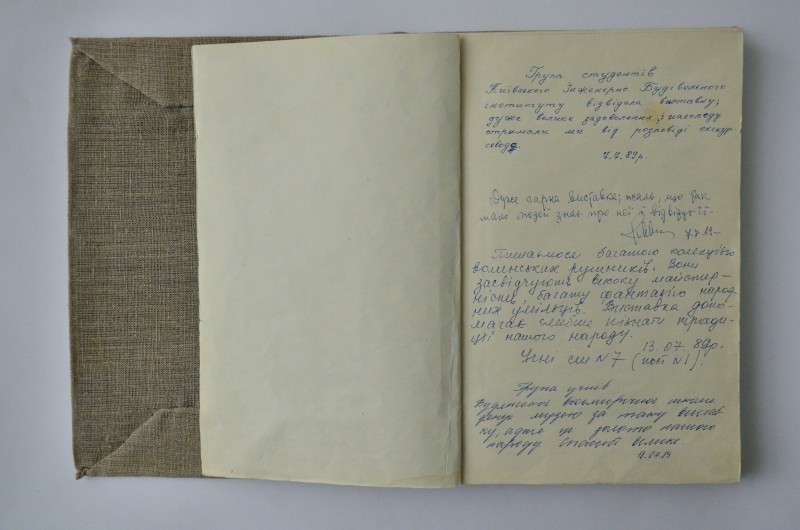 Група студентів
Київського Інженерно Будівельного
інституту відвідала виставку;
дуже велике задоволення, і насолоду
отримали ми від розповіді екскур-
совода.
7.7.89р
Дуже гарна виставка; жаль, що так
мало людей знає про неї й відвідує її-
7.7.89-
Пишаємося багатою колекцією
волинських рушників. Вони
засвідчують високу майстер-
ність, багату фантазію народ-
них умільців. Виставка допо-
магає глибше пізнати тради-
ції нашого народу.
13.07.89р.
Учні сш N7 (пост N1).
Група учнів
восьмирічної школи
дякує музею за таку вистав-
ку, адже це золото нашого
народу